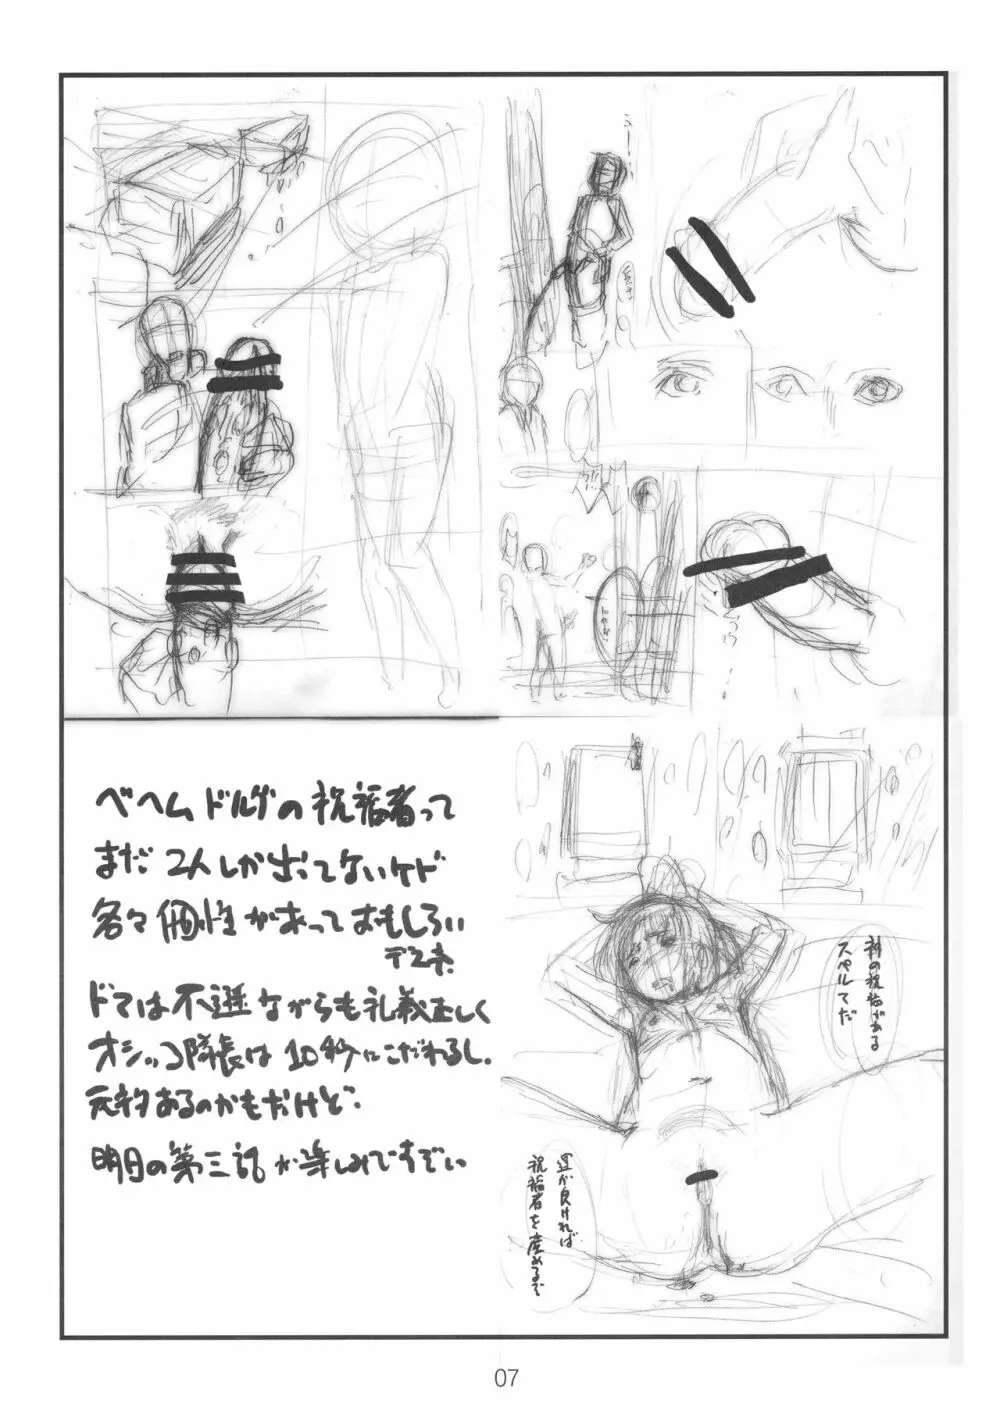 ベヘム ドルゲの祝福者って
まだ 2人しか出てないケド
各々個性があっておもしろい
デスネ.
ドマは不遜ながらも礼義正しく
オシッコ隊長は 10秒にこだわるし.
元ネタあるのかもだけど.
明日の第三話が楽しみですぞい
利の祝福がある
スペルてだ
運が良ければ
祝福者を産めるぞ
07